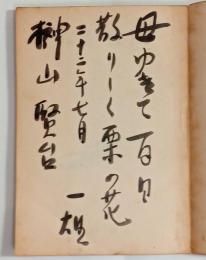 母ゆきて百日
散りしく栗の花
二十二年七月
一雄
榊山賢台